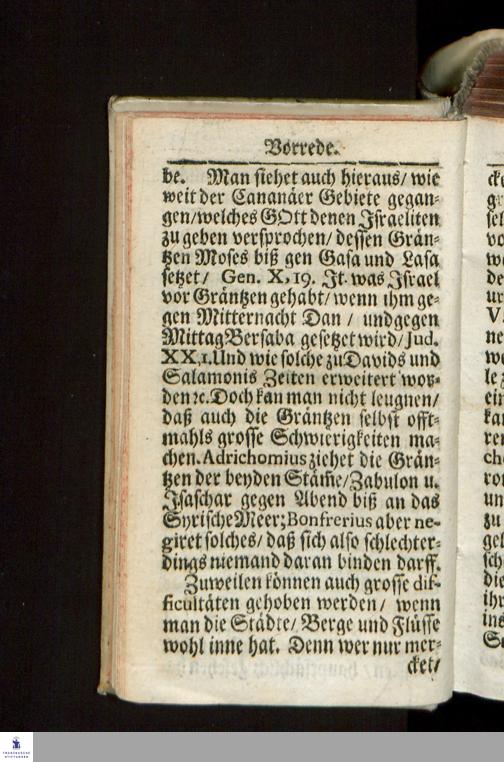 Vorrede.
be. Man siehet auch hieraus/ wie
weit der Cananäer Gebiete gegan-
gen/welches GOtt denen Israeliten
zu geben versprochen/ dessen Grän-
tzen Moses biß gen Gasa und Lasa
setzet/ Gen. X, 19. It. was Israel
vor Gräntzen gehabt/ wenn ihm ge-
gen Mitternacht Dan / und gegen
Mittag Bersaba gesetzet wird/ Jud.
XX,1. Und wie solche zu Davids und
Salamonis Zeiten erweitert wor-
den ꝛc. Doch kan man nicht leugnen/
daß auch die Gräntzen selbst offt-
mahls grosse Schwierigkeiten ma-
chen. Adrichomius ziehet die Grän-
tzen der beyden Stäm̃e/ Zabulon u.
Isaschar gegen Abend biß an das
Syrische Meer; Bonfrerius aber ne-
giret solches/ daß sich also schlechter-
dings niemand daran binden darff.
Zuweilen können auch grosse dif-
ficultäten gehoben werden/ wenn
man die Städte/ Berge und Flüsse
wohl inne hat. Denn wer nur mer-
cket/
FRANCKESCHE
STIFTUNGEN